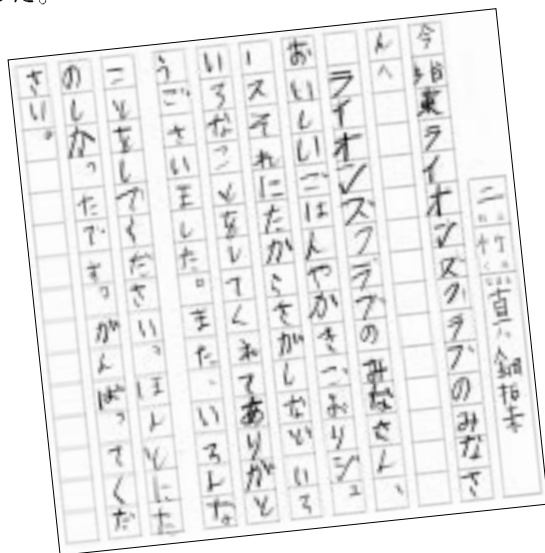 した。
今指東ライオンズクラブのみなさ
んへ
ライオンズクラブのみなさん、
おいしいごはんやかきごおりジュ
ースそれにたからさがしなどいろ
いろなことをしてくれてありがと
うございました。また、いろんな
ことをしてください。ほんとにた
のしかったです。がんばってくだ
さい。